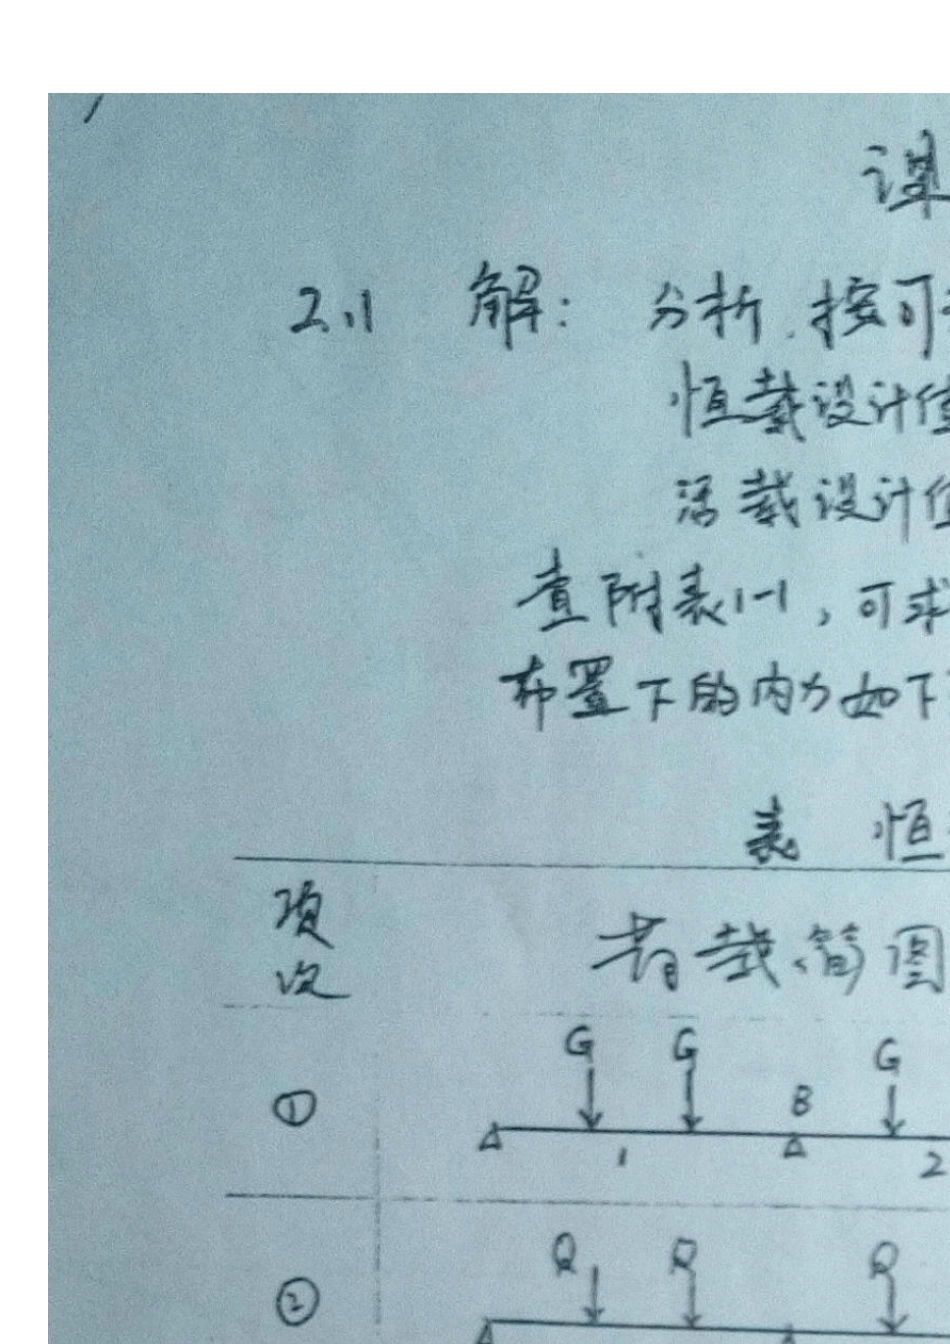 课
2.1 解: 分析.按可
恒载设计值
活载设计值
查附表1-1,可求
布置下的内力如下
表 恒
项
次
荷载简图
G G G
① B
1 2
Q Q Q
②